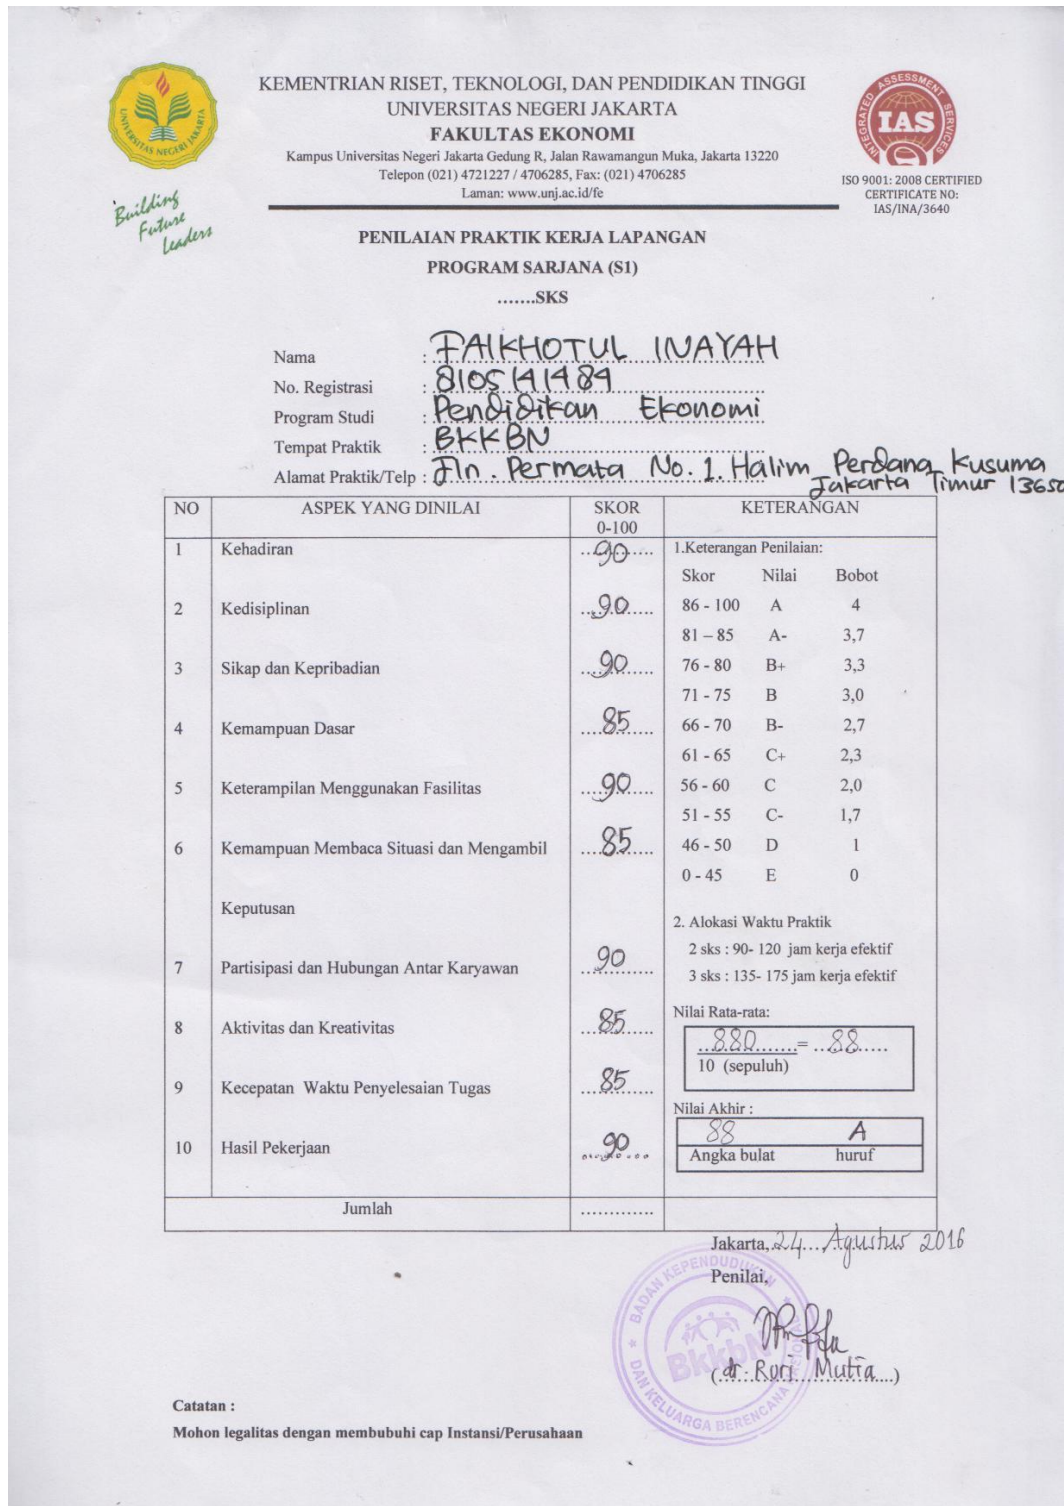 KEMENTRIAN RISET, TEKNOLOGI, DAN PENDIDIKAN TINGGI
UNIVERSITAS NEGERI JAKARTA
FAKULTAS EKONOMI
Kampus Universitas Negeri Jakarta Gedung R, Jalan Rawamangun Muka, Jakarta 13220
Telepon (021) 4721227 / 4706285, Fax: (021) 4706285
Laman: www.unj.ac.id/fe
UNIVERSITAS NEGERI JAKARTA
Building
Future
Leaders
INTEGRATED ASSESSMENT SERVICES
IAS
ISO 9001: 2008 CERTIFIED
CERTIFICATE NO:
IAS/INA/3640
PENILAIAN PRAKTIK KERJA LAPANGAN
PROGRAM SARJANA (S1)
.......SKS
Nama : FAIKHOTUL INAYAH
No. Registrasi : 8105141484
Program Studi : Pendidikan Ekonomi
Tempat Praktik : BKKBN
Alamat Praktik/Telp : Jln. Permata No. 1. Halim Perdana Kusuma
Jakarta Timur 13650
NO ASPEK YANG DINILAI SKOR 0-100 KETERANGAN
1 Kehadiran 90
2 Kedisiplinan 90
3 Sikap dan Kepribadian 90
4 Kemampuan Dasar 85
5 Keterampilan Menggunakan Fasilitas 90
6 Kemampuan Membaca Situasi dan Mengambil 85
Keputusan
7 Partisipasi dan Hubungan Antar Karyawan 90
8 Aktivitas dan Kreativitas 85
9 Kecepatan Waktu Penyelesaian Tugas 85
10 Hasil Pekerjaan 90
Jumlah .............
1.Keterangan Penilaian:
Skor Nilai Bobot
86 - 100 A 4
81 – 85 A- 3,7
76 - 80 B+ 3,3
71 - 75 B 3,0
66 - 70 B- 2,7
61 - 65 C+ 2,3
56 - 60 C 2,0
51 - 55 C- 1,7
46 - 50 D 1
0 - 45 E 0
2. Alokasi Waktu Praktik
2 sks : 90- 120 jam kerja efektif
3 sks : 135- 175 jam kerja efektif
Nilai Rata-rata:
880 = 88
10 (sepuluh)
Nilai Akhir :
88 A
Angka bulat huruf
Jakarta, 24 Agustus 2016
Penilai,
BADAN KEPENDUDUKAN
DAN KELUARGA BERENCANA NASIONAL
BkkbN
(dr. Ruri Mutia)
Catatan :
Mohon legalitas dengan membubuhi cap Instansi/Perusahaan